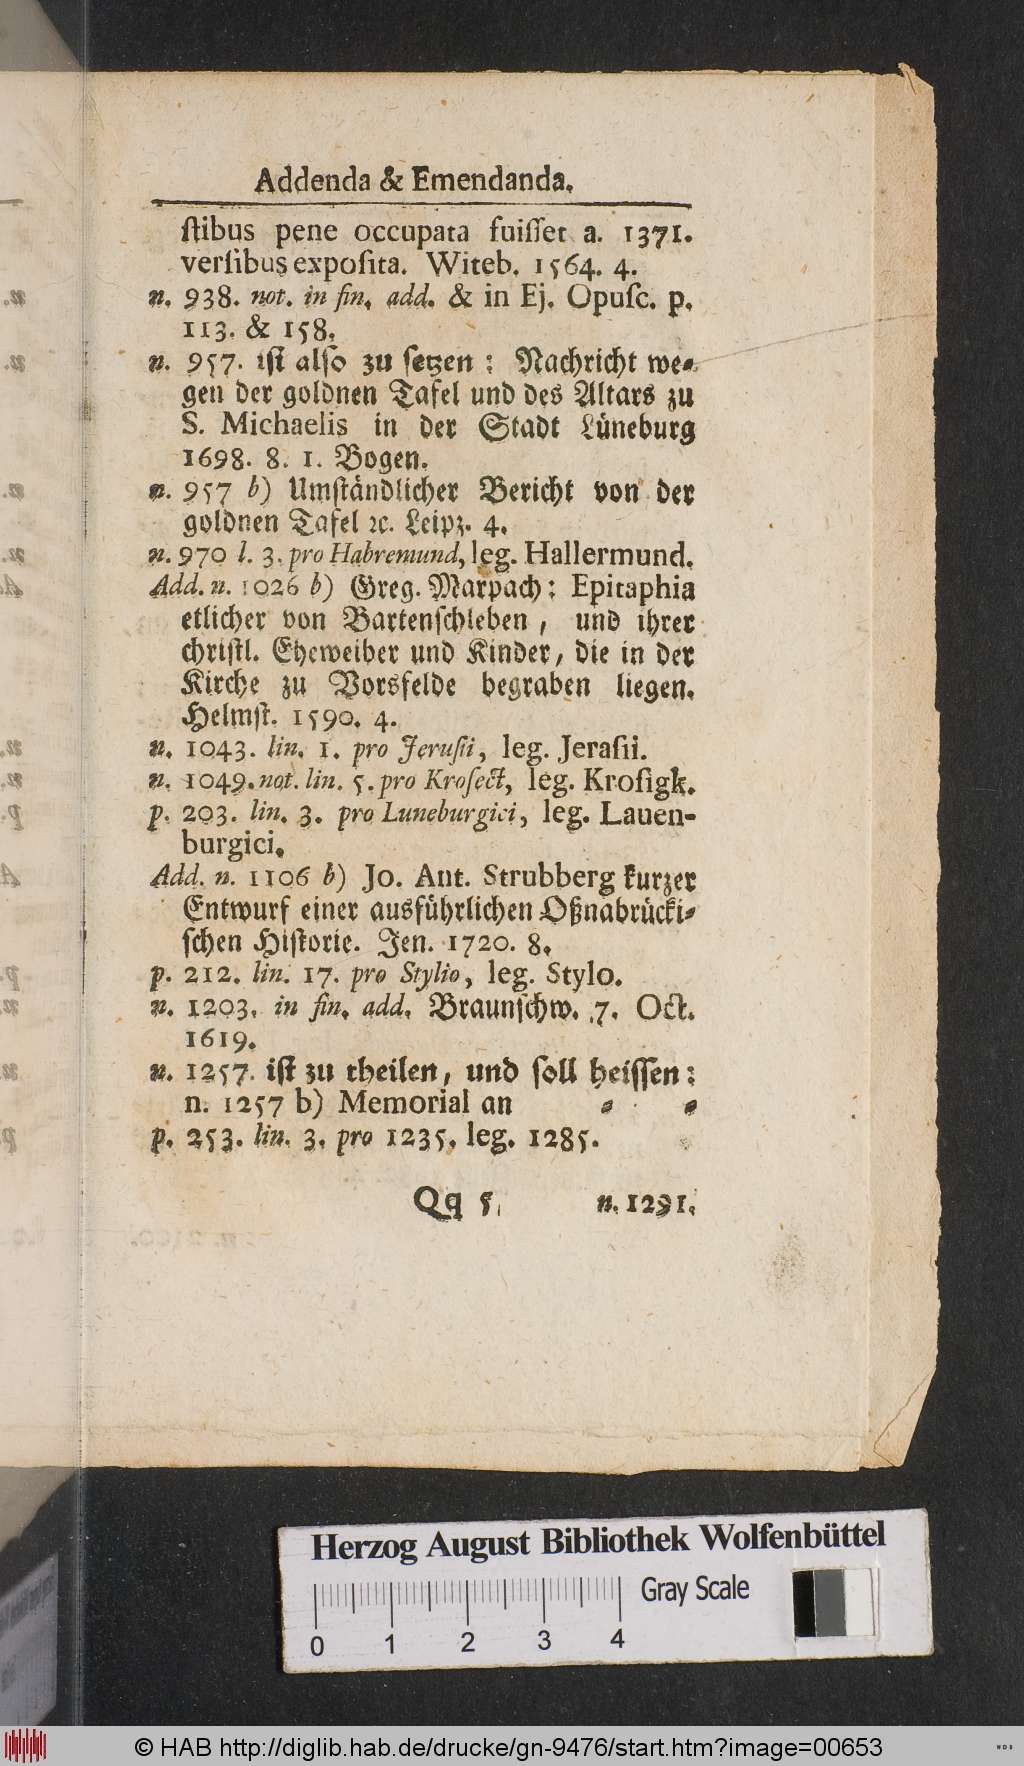 Addenda & Emendanda.
ſtibus pene occupata fuiſſet a. 1371.
verſibus expoſita. Witeb. 1564. 4.
n. 938. not. in fin. add. & in Ej. Opuſc. p.
113. & 158.
n. 957. iſt alſo zu ſetzen: Nachricht we-
gen der goldnen Tafel und des Altars zu
S. Michaelis in der Stadt Lüneburg
1698. 8. 1. Bogen.
n. 957 b) Umſtändlicher Bericht von der
goldnen Tafel ꝛc. Leipz. 4.
n. 970 l. 3. pro Habremund, leg. Hallermund.
Add. n. 1026 b) Greg. Marpach: Epitaphia
etlicher von Bartenſchleben, und ihrer
chriſtl. Eheweiber und Kinder, die in der
Kirche zu Vorsfelde begraben liegen.
Helmſt. 1590. 4.
n. 1043. lin. 1. pro Jeruſii, leg. Jeraſii.
n. 1049. not. lin. 5. pro Kroſect, leg. Kroſigk.
p. 203. lin. 3. pro Luneburgici, leg. Lauen-
burgici.
Add. n. 1106 b) Jo. Ant. Strubberg kurzer
Entwurf einer ausführlichen Oßnabrücki-
ſchen Hiſtorie. Jen. 1720. 8.
p. 212. lin. 17. pro Stylio, leg. Stylo.
n. 1203. in fin. add. Braunſchw. 7. Oct.
1619.
n. 1257. iſt zu theilen, und ſoll heiſſen:
n. 1257 b) Memorial an - -
p. 253. lin. 3. pro 1235. leg. 1285.
Qq 5 n. 1291.
Herzog August Bibliothek Wolfenbüttel
Gray Scale
0 1 2 3 4
© HAB http://diglib.hab.de/drucke/gn-9476/start.htm?image=00653